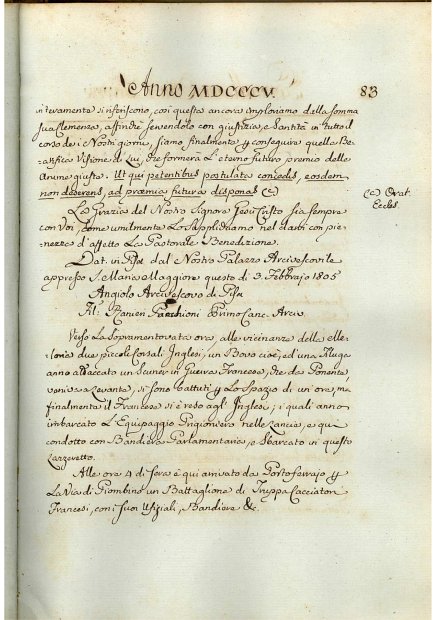 Anno MDCCCV. 83
interamente si riferiscono, così questa ancora imploriamo della somma
sua Clemenza, affinchè servendolo con giustizia, e Santità in tutto il
corso de i Nostri giorni, siamo finalmente per conseguire quella Be-
atifica Visione di Lui, che formerà L'eterno futuro premio delle
Anime giuste. Ut qui petentibus postulata concedis, eosdem
non deserens, ad præmia futura disponas (c) (c) Orat.
Eccles.
La Grazia del Nostro Signore Gesù Cristo sia sempre
con Voi, come umilmente Lo Supplichiamo nel darvi con pie-
nezza d'affetto La Pastorale Benedizione.
Dat. in Pisa dal Nostro Palazzo Arcivescovile
appresso S. Maria Maggiore questo dì 3. Febbrajo 1805
Angiolo Arcivescovo di Pisa
Ranieri Primo Canc. Arciv.
Verso La Sopramentovata ora alle vicinanze della
due piccoli Corsali Inglesi, un Bovo cioè, ed una
anno attaccato un Francese, che da Ponente
veniva a Levante, si sono battuti per Lo Spazio di un'ora, ma
finalmente il Francese si è reso agl'Inglesi; i quali anno
imbarcato L'Equipaggio Prigioniero nelle Lancie, e qui
condotto con Bandiera Parlamentaria, e sbarcato in questo
Lazzeretto.
Alle ore 4 di sera è qui arrivato da Portoferrajo per
La Via di Piombino un Battaglione di Truppa Cacciatori
Francesi, con i suoi Ufiziali, Bandiere &c.